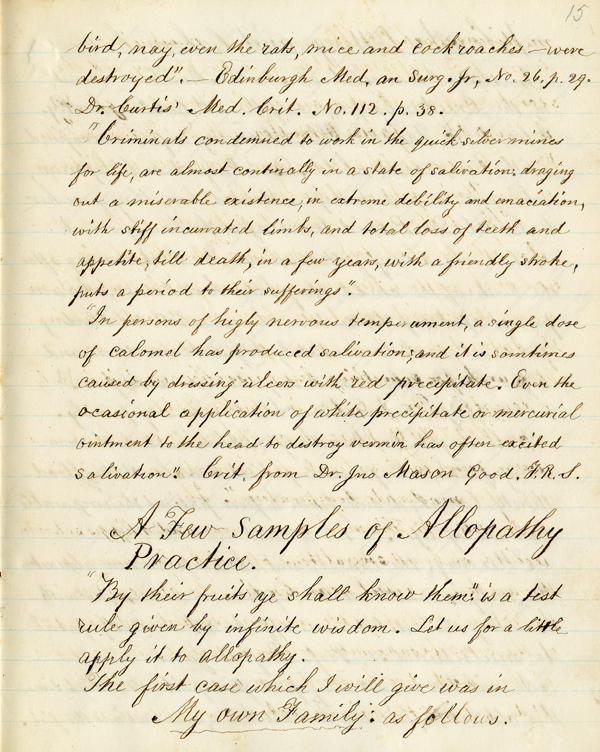 15
bird, nay, even the rats, mice and cockroaches — were
destroyed". — Edinburgh Med, an Surg. Jr, No. 26, p. 29.
Dr. Curtis' Med. Crit. No. 112. p. 38.
"Criminals condemned to work in the quick silver mines
for life, are almost continally in a state of salivation; draging
out a miserable existence, in extreme debility and emaciation,
with stiff incurvated limbs, and total loss of teeth and
appetite, till death, in a few years, with a friendly stroke,
puts a period to their sufferings".
"In persons of higly nervous temperament, a single dose
of calomel has produced salivation; and it is somtimes
caused by dressing ulcers with red precipitate. Even the
ocasional application of white precipitate or mercurial
ointment to the head to destroy vermin has often excited
salivation". Crit. from Dr. Jno Mason Good. F.R.S.
A Few Samples of Allopathy
Practice.
"By their fruits ye shall know them" is a test
rule given by infinite wisdom. Let us for a little
apply it to allopathy.
The first case which I will give was in
My own Family: as follows.